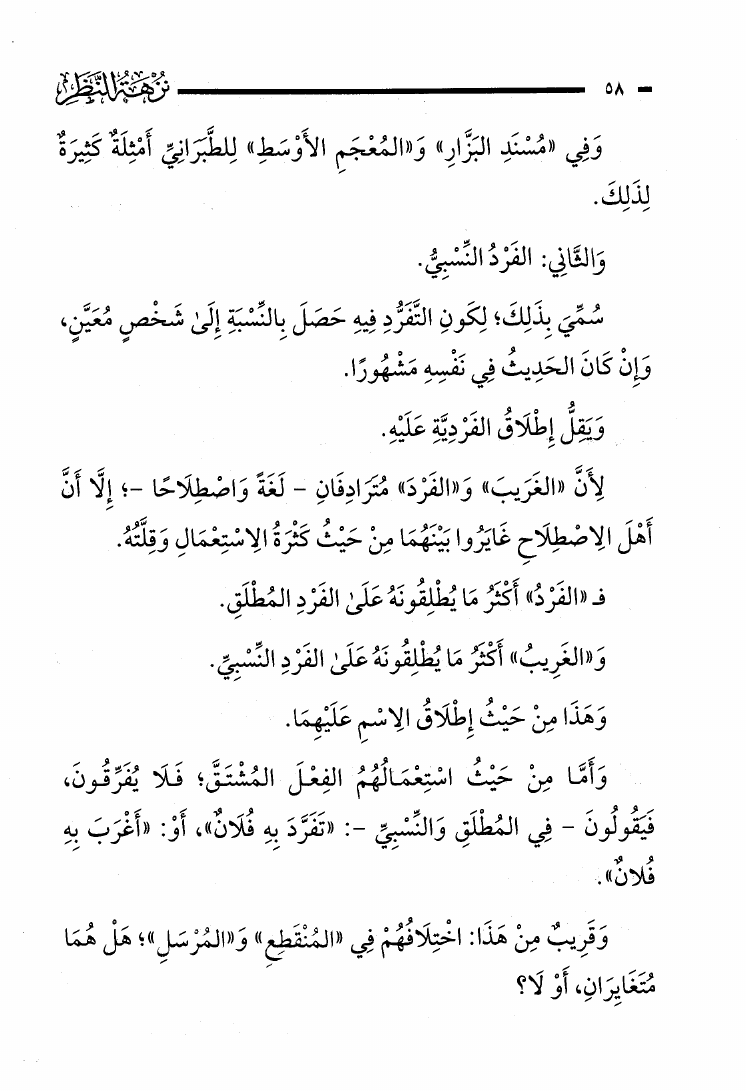 ٥٨ نُزْهَةُ النَّظَرِ
وَفِي «مُسْنَدِ البَزَّارِ» وَ«المُعْجَمِ الأَوْسَطِ» لِلطَّبَرَانِيِّ أَمْثِلَةٌ كَثِيرَةٌ
لِذَلِكَ.
وَالثَّانِي: الفَرْدُ النِّسْبِيُّ.
سُمِّيَ بِذَلِكَ؛ لِكَونِ التَّفَرُّدِ فِيهِ حَصَلَ بِالنِّسْبَةِ إِلَىٰ شَخْصٍ مُعَيَّنٍ،
وَإِنْ كَانَ الحَدِيثُ فِي نَفْسِهِ مَشْهُورًا.
وَيَقِلُّ إِطْلَاقُ الفَرْدِيَّةِ عَلَيْهِ.
لِأَنَّ «الغَرِيبَ» وَ«الفَرْدَ» مُتَرَادِفَانِ - لَغَةً وَاصْطِلَاحًا -؛ إِلَّا أَنَّ
أَهْلَ الِاصْطِلَاحِ غَايَرُوا بَيْنَهُمَا مِنْ حَيْثُ كَثْرَةُ الِاسْتِعْمَالِ وَقِلَّتُهُ.
فـ «الفَرْدُ» أَكْثَرُ مَا يُطْلِقُونَهُ عَلَىٰ الفَرْدِ المُطْلَقِ.
وَ«الغَرِيبُ» أَكْثَرُ مَا يُطْلِقُونَهُ عَلَىٰ الفَرْدِ النِّسْبِيِّ.
وَهَذَا مِنْ حَيْثُ إِطْلَاقُ الِاسْمِ عَلَيْهِمَا.
وَأَمَّا مِنْ حَيْثُ اسْتِعْمَالُهُمُ الفِعْلَ المُشْتَقَّ؛ فَلَا يُفَرِّقُونَ،
فَيَقُولُونَ - فِي المُطْلَقِ وَالنِّسْبِيِّ -: «تَفَرَّدَ بِهِ فُلَانٌ»، أَوْ: «أَغْرَبَ بِهِ
فُلانٌ».
وَقَرِيبٌ مِنْ هَذَا: اخْتِلَافُهُمْ فِي «المُنْقَطِعِ» وَ«المُرْسَلِ»؛ هَلْ هُمَا
مُتَغَايِرَانِ، أَوْ لَا؟